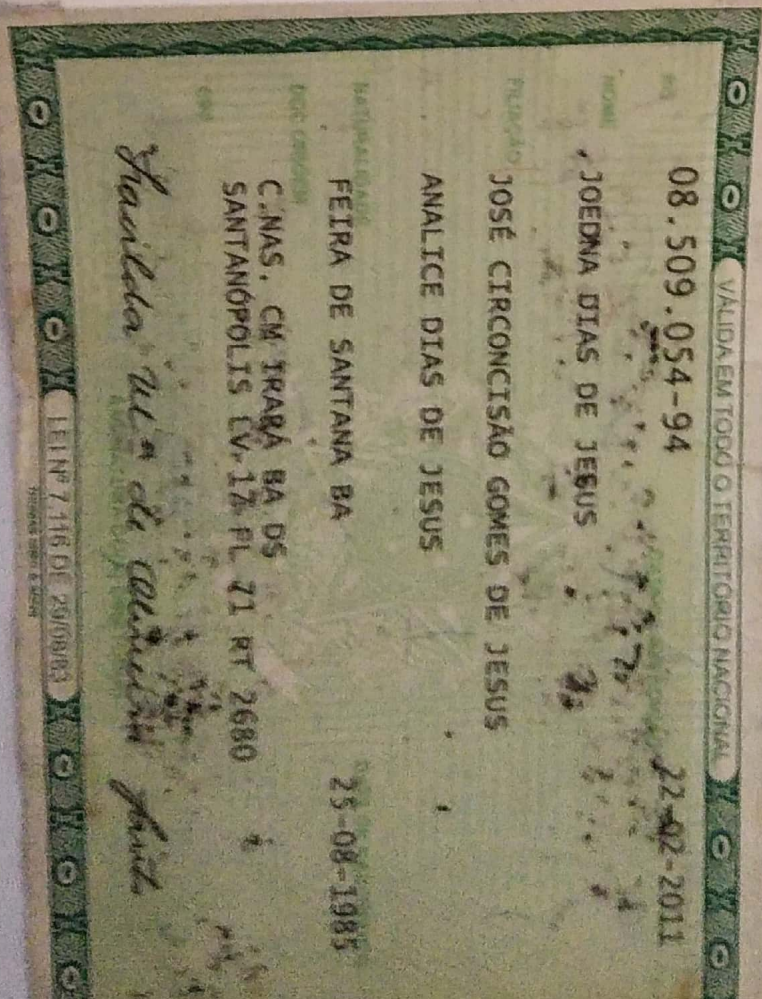 VÁLIDA EM TODO O TERRITÓRIO NACIONAL
RG 08.509.054-94 22-02-2011
NOME JOEDNA DIAS DE JESUS
FILIAÇÃO JOSÉ CIRCONCISÃO GOMES DE JESUS
ANALICE DIAS DE JESUS
NATURALIDADE FEIRA DE SANTANA BA 25-08-1985
DOC ORIGEM C.NAS. CM IRARÁ BA DS
SANTANÓPOLIS LV 17 FL 71 RT 2680
CPF
LEI Nº 7.116 DE 29/08/83